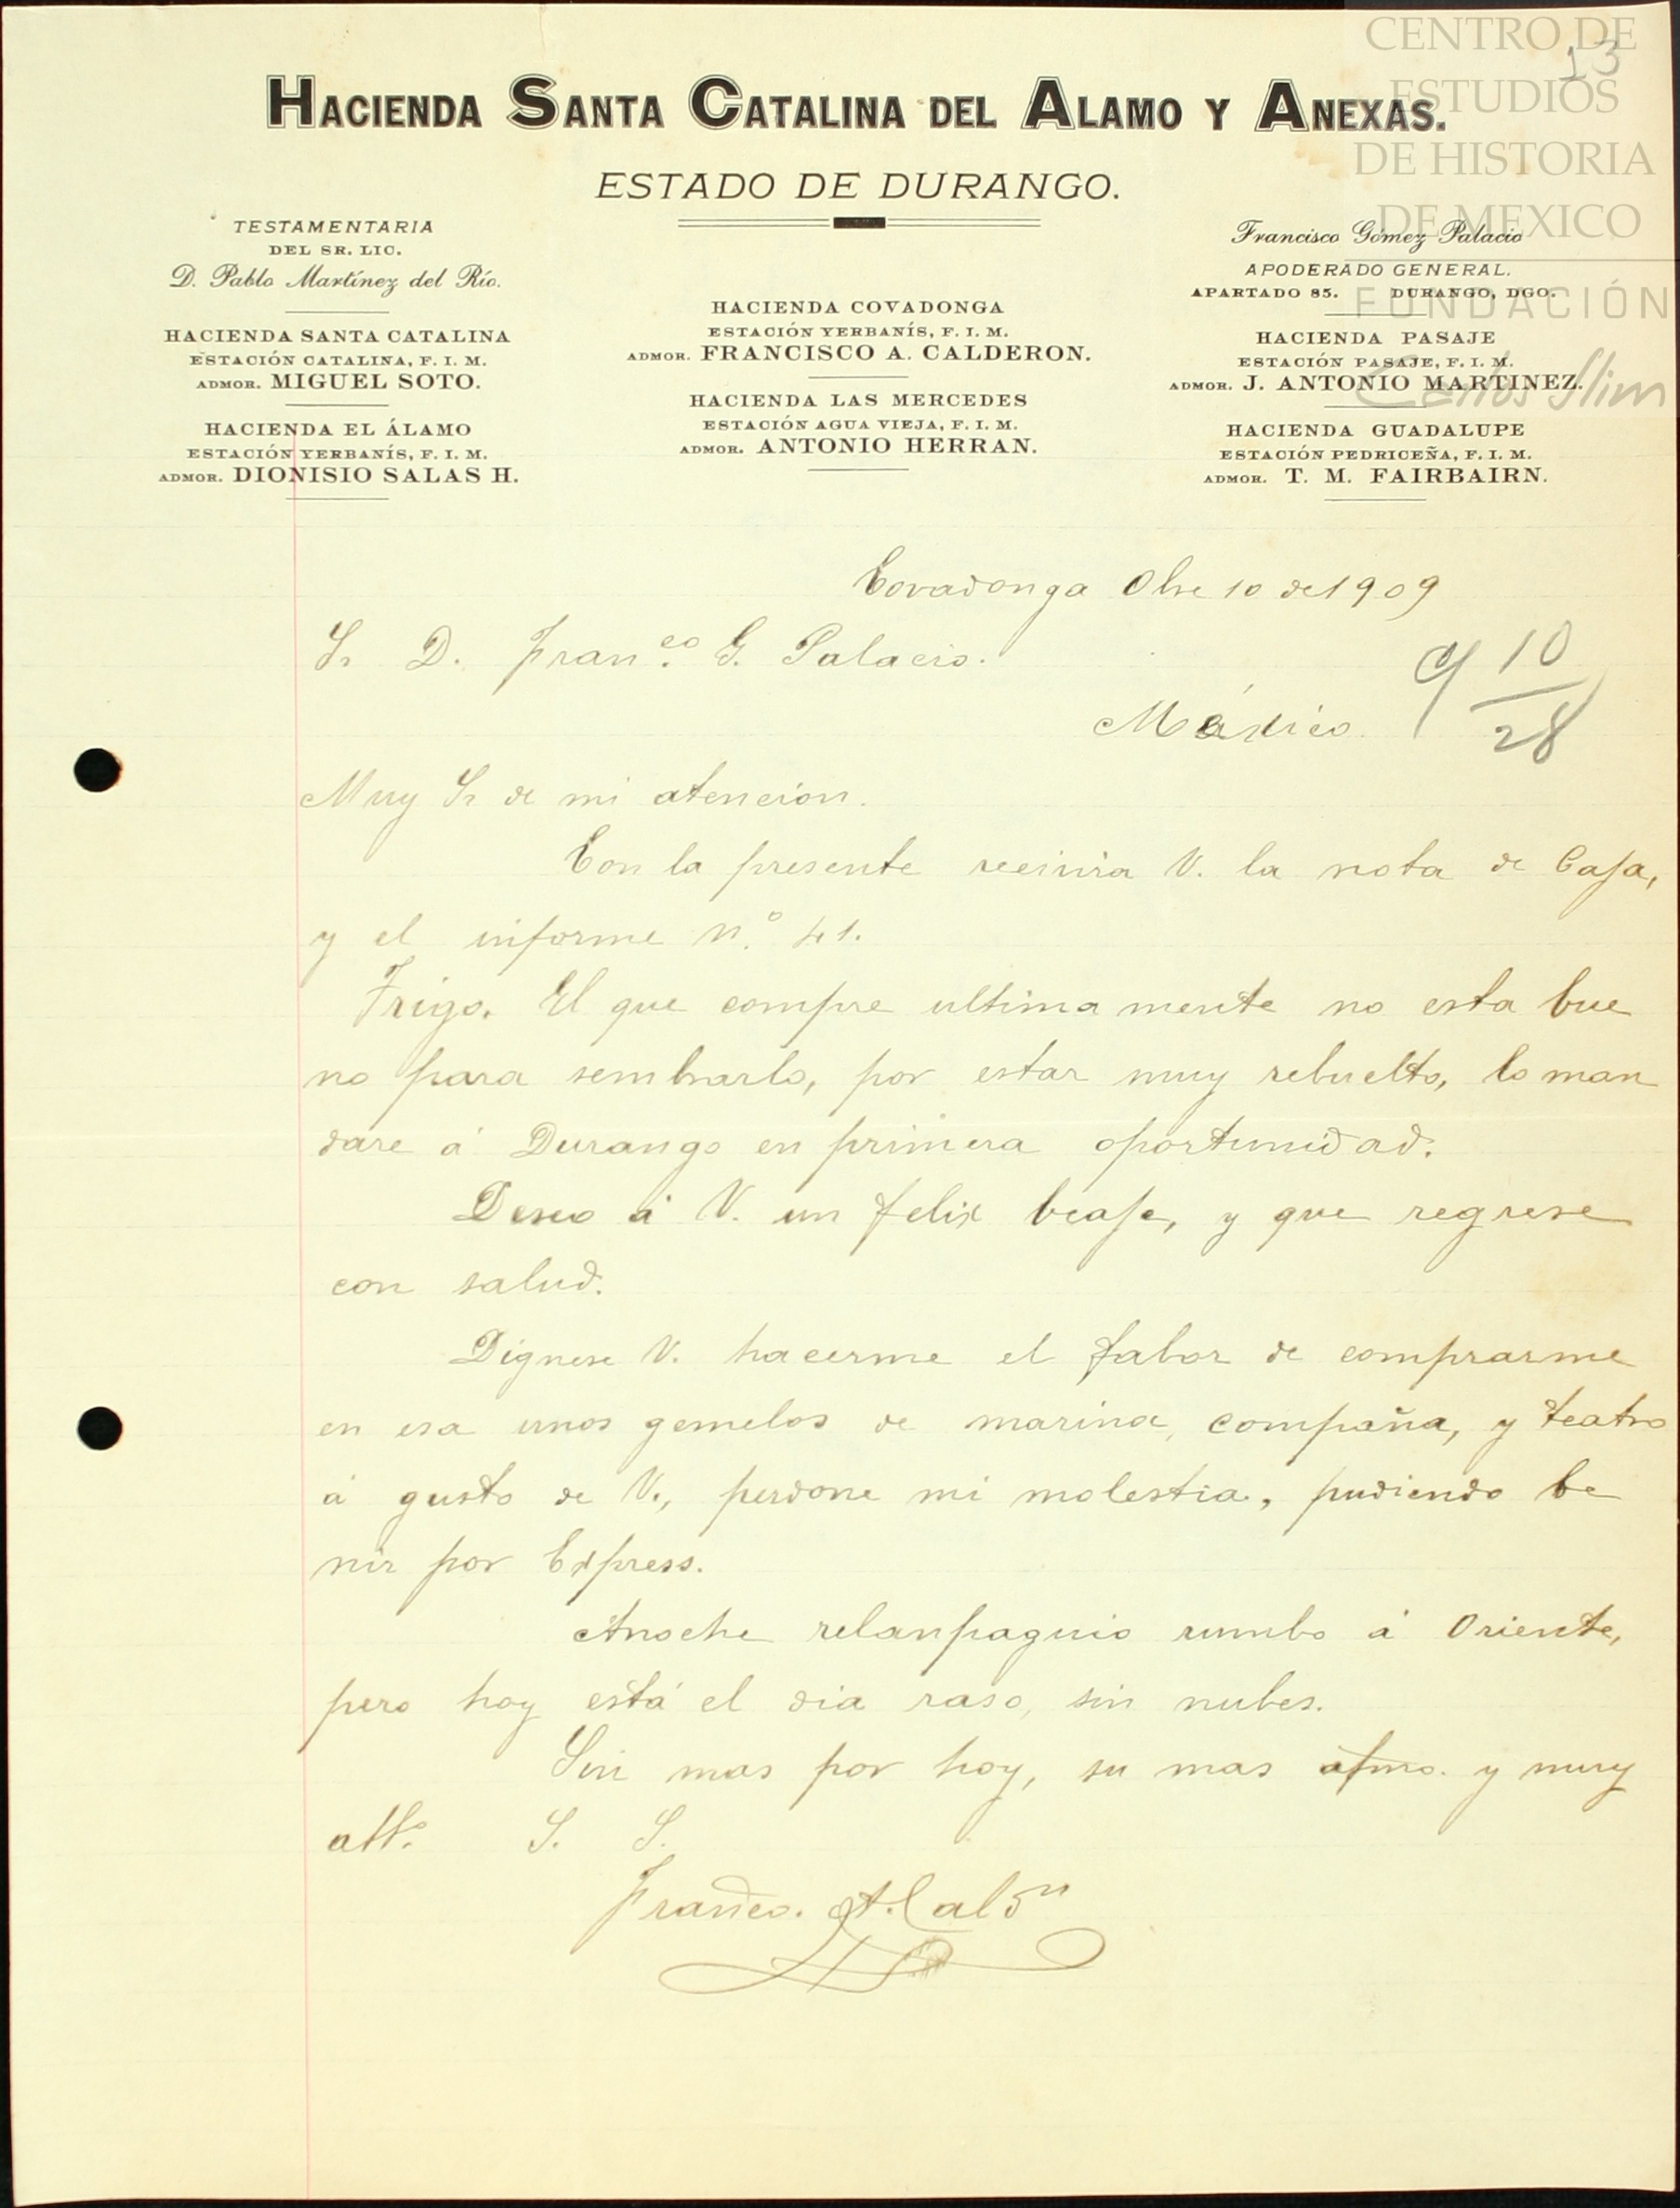 CENTRO DE
ESTUDIOS
DE HISTORIA
DE MEXICO
FUNDACIÓN
Carlos Slim
13
HACIENDA SANTA CATALINA DEL ALAMO Y ANEXAS.
ESTADO DE DURANGO.
TESTAMENTARIA
DEL SR. LIC.
D. Pablo Martínez del Río.
HACIENDA SANTA CATALINA
ESTACIÓN CATALINA, F. I. M.
ADMOR. MIGUEL SOTO.
HACIENDA EL ÁLAMO
ESTACIÓN YERBANÍS, F. I. M.
ADMOR. DIONISIO SALAS H.
HACIENDA COVADONGA
ESTACIÓN YERBANÍS, F. I. M.
ADMOR. FRANCISCO A. CALDERON.
HACIENDA LAS MERCEDES
ESTACIÓN AGUA VIEJA, F. I. M.
ADMOR. ANTONIO HERRAN.
Francisco Gómez Palacio
APODERADO GENERAL.
APARTADO 85. DURANGO, DGO.
HACIENDA PASAJE
ESTACIÓN PASAJE, F. I. M.
ADMOR. J. ANTONIO MARTINEZ.
HACIENDA GUADALUPE
ESTACIÓN PEDRICEÑA, F. I. M.
ADMOR. T. M. FAIRBAIRN.
Covadonga Obre 10 de 1909
Sr D. Franco. G. Palacio.
México.
10
28
Muy Sr de mi atencion.
Con la presente recivira V. la nota de Caja,
y el informe n.º 41.
Trigo. El que compre ultima mente no esta bue
no para sembrarlo, por estar muy rebuelto, lo man
dare á Durango en primera oportunidad.
Deseo á V. un felix biaje, y que regrese
con salud.
Dignese V. hacerme el fabor de comprarme
en esa unos gemelos de marina, compaña, y teatro
á gusto de V., perdone mi molestia, pudiendo be
nir por Express.
Anoche relanpaguio rumbo á Oriente,
pero hoy está el dia raso, sin nubes.
Sin mas por hoy, su mas afmo. y muy
atto. S. S.
Franco. A. Caldn